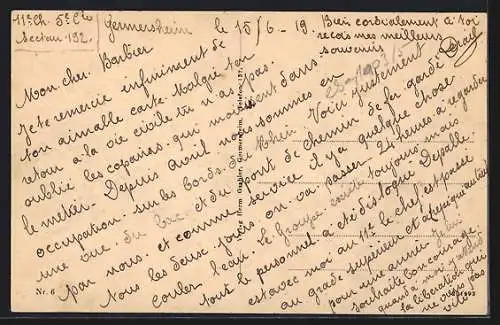 11e Ch. 5e Cie
Secteur 192.
Germersheim le 15/6-19.
Mon cher Barbier
Je te remercie infiniment de
ton aimable carte. Malgré ton
retour à la vie civile tu n'as pas
oublié les copains qui moisissent dans
le métier. Depuis Avril nous sommes en
occupation sur les bords du Rhin. Voici justement
une vue du bac et du pont de chemin de fer gardé
par nous. et comme service il y a quelque chose
Tous les deux jours on va passer 24 heures à regarder
couler l'eau. Le Groupe existe toujours mais
tout le personnel a été disloqué. Depalle
est avec moi au 11e le chef est passé
au grade supérieur et a rempilé
pour une année. Je lui
souhaite bon courage
quand à moi j'attends
la libération qui
ne vient pas
vite
Bien cordialement à toi
reçois mes meilleurs
souvenirs
Verlag Herm Gaebler, Germersheim, Telefon 157.
Nr. 6